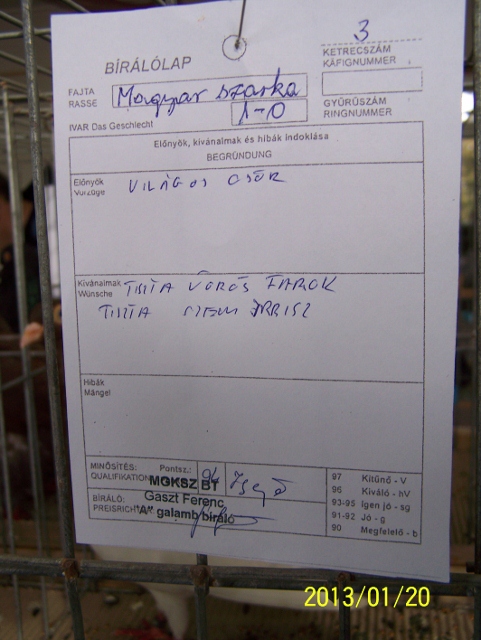 3
BÍRÁLÓLAP
KETRECSZÁM
KÄFIGNUMMER
FAJTA
RASSE
Magyar szarka
1-0
GYŰRŰSZÁM
RINGNUMMER
IVAR Das Geschlecht
Előnyök, kívánalmak és hibák indoklása
BEGRÜNDUNG
Előnyök
Vorzüge
VILÁGOS CSŐR
Kívánalmak
Wünsche
TISZTA VÖRÖS FAROK
TISZTA SZEM IRISZ
Hibák
Mängel
MINŐSÍTÉS:
QUALIFIKATION
Pontsz.:
94
MGKSZ BT
BÍRÁLÓ:
PREISRICHT
Gaszt Ferenc
"A" galambbíráló
97 Kitűnő - V
96 Kiváló - hV
93-95 Igen jó - sg
91-92 Jó - g
90 Megfelelő - b
2013/01/20